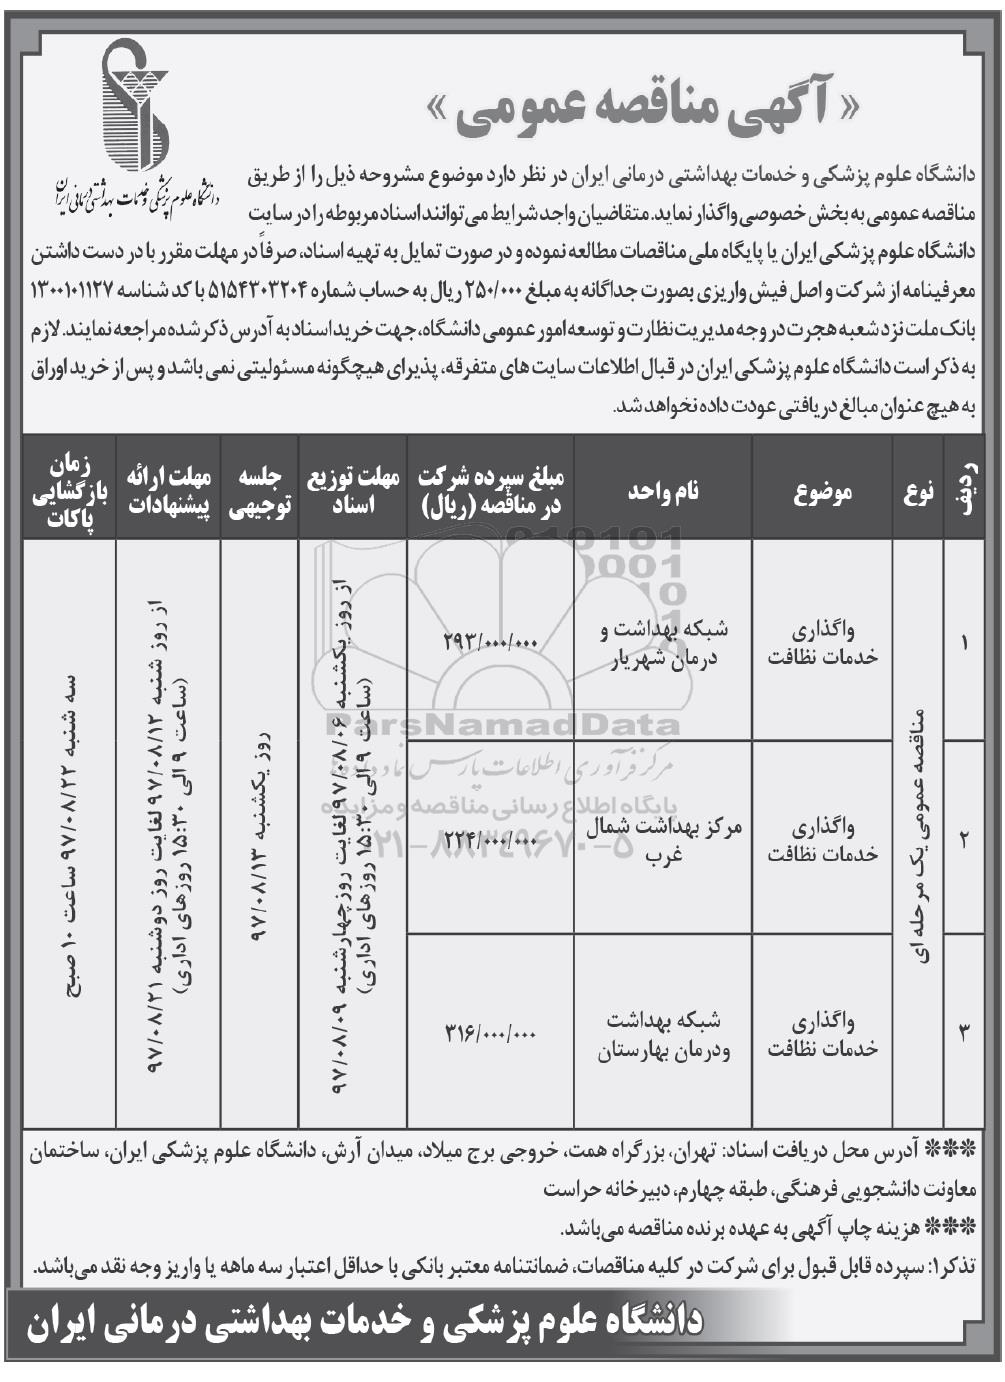 « آگهی مناقصه عمومی »
دانشگاه علوم پزشکی و خدمات بهداشتی درمانی ایران
دانشگاه علوم پزشکی و خدمات بهداشتی درمانی ایران در نظر دارد موضوع مشروحه ذیل را از طریق
مناقصه عمومی به بخش خصوصی واگذار نماید. متقاضیان واجد شرایط می‌توانند اسناد مربوطه را در سایت
دانشگاه علوم پزشکی ایران یا پایگاه ملی مناقصات مطالعه نموده و در صورت تمایل به تهیه اسناد، صرفاً در مهلت مقرر با در دست داشتن
معرفینامه از شرکت و اصل فیش واریزی بصورت جداگانه به مبلغ ۲۵۰/۰۰۰ ریال به حساب شماره ۵۱۵۴۳۰۳۲۰۴ با کد شناسه ۱۳۰۰۱۰۱۱۲۷
بانک ملت نزد شعبه هجرت در وجه مدیریت نظارت و توسعه امور عمومی دانشگاه، جهت خرید اسناد به آدرس ذکر شده مراجعه نمایند. لازم
به ذکر است دانشگاه علوم پزشکی ایران در قبال اطلاعات سایت های متفرقه، پذیرای هیچگونه مسئولیتی نمی باشد و پس از خرید اوراق
به هیچ عنوان مبالغ دریافتی عودت داده نخواهد شد.
ردیف
نوع
موضوع
نام واحد
مبلغ سپرده شرکت
در مناقصه (ریال)
مهلت توزیع
اسناد
جلسه
توجیهی
مهلت ارائه
پیشنهادات
زمان
بازگشایی
پاکات
۱
مناقصه عمومی یک مرحله ای
واگذاری
خدمات نظافت
شبکه بهداشت و
درمان شهریار
۲۹۳/۰۰۰/۰۰۰
از روز یکشنبه ۹۷/۰۸/۰۶ لغایت روز چهارشنبه ۹۷/۰۸/۰۹
(ساعت ۹ الی ۱۵:۳۰ روزهای اداری)
روز یکشنبه ۹۷/۰۸/۱۳
از روز شنبه ۹۷/۰۸/۱۲ لغایت روز دوشنبه ۹۷/۰۸/۲۱
(ساعت ۹ الی ۱۵:۳۰ روزهای اداری)
سه شنبه ۹۷/۰۸/۲۲ ساعت ۱۰ صبح
۲
واگذاری
خدمات نظافت
مرکز بهداشت شمال
غرب
۲۲۴/۰۰۰/۰۰۰
۳
واگذاری
خدمات نظافت
شبکه بهداشت
ودرمان بهارستان
۳۱۶/۰۰۰/۰۰۰
ParsNamadData
مرکز فرآوری اطلاعات پارس نماد داده‌ها
پایگاه اطلاع رسانی مناقصه و مزایده
۰۲۱-۸۸۳۴۹۶۷۰-۵
*** آدرس محل دریافت اسناد: تهران، بزرگراه همت، خروجی برج میلاد، میدان آرش، دانشگاه علوم پزشکی ایران، ساختمان
معاونت دانشجویی فرهنگی، طبقه چهارم، دبیرخانه حراست
*** هزینه چاپ آگهی به عهده برنده مناقصه می‌باشد.
تذکر۱: سپرده قابل قبول برای شرکت در کلیه مناقصات، ضمانتنامه معتبر بانکی با حداقل اعتبار سه ماهه یا واریز وجه نقد می‌باشد.
دانشگاه علوم پزشکی و خدمات بهداشتی درمانی ایران